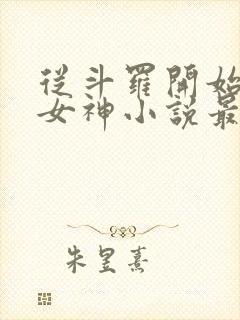 從斗羅開始
女神小說最
朱昱熹